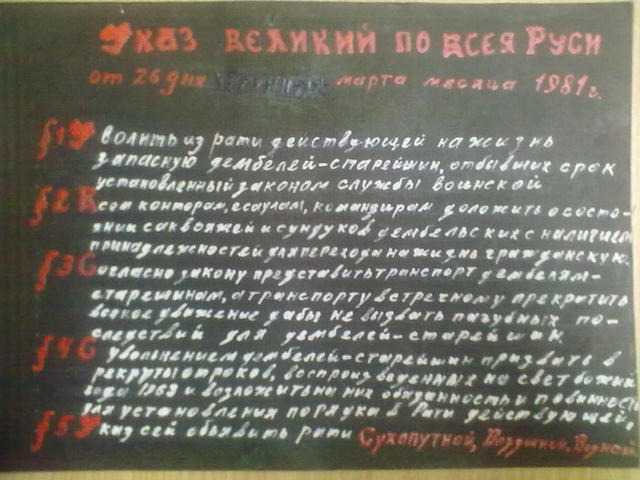 Указ великий по всея Руси
от 26 дня марта месяца 1981 г.
§1 Уволить из рати действующей на жизнь
запасную дембелей-старейшин, отбывших срок
установленный законом службы воинской
§2 Всем конторам, есаулам, командирам доложить о состо-
янии саквояжей и сундуков дембельских с наличием
принадлежностей для перехода на жизнь гражданскую.
§3 Согласно закону представить транспорт дембелям-
старешинам, а транспорту встречному прекратить
всякое движение дабы не вызвать пагубных по-
следствий для дембелей-старейшин
§4 С увольнением дембелей-старейшин призвать в
рекруты отроков, воспроизведенных на свет божий
года 1963 и возложить на них обязанность и повинность
для установления порядка в Рати действующей.
§5 Указ сей объявить рати Сухопутной, Воздушной, Водной